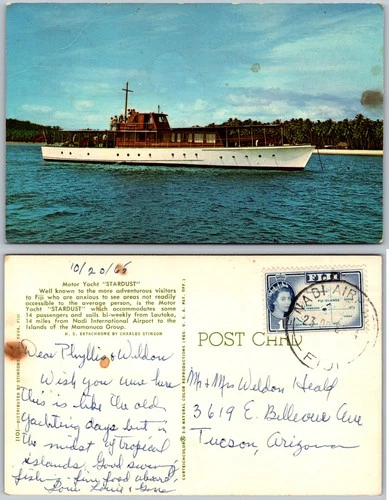 10/20/65
Motor Yacht "STARDUST"
Well known to the more adventurous visitors
to Fiji who are anxious to see areas not readily
accessible to the average person, is the Motor
Yacht "STARDUST" which accommodates some
14 passengers and sails bi-weekly from Lautoka,
14 miles from Nadi International Airport to the
Islands of the Mamanuca Group.
H. S. EKTACHROME BY CHARLES STINSON
Dear Phyllis & Weldon
Wish you was here
This is like the old
yachting days but in
the midst of tropical
islands. Good swimming
fishing - fine food aboard.
FIJI
NADI AIR
FIJI
POST CARD
Mr & Mrs Weldon Heald
3619 E. Bellevue Ave
Tucson, Arizona